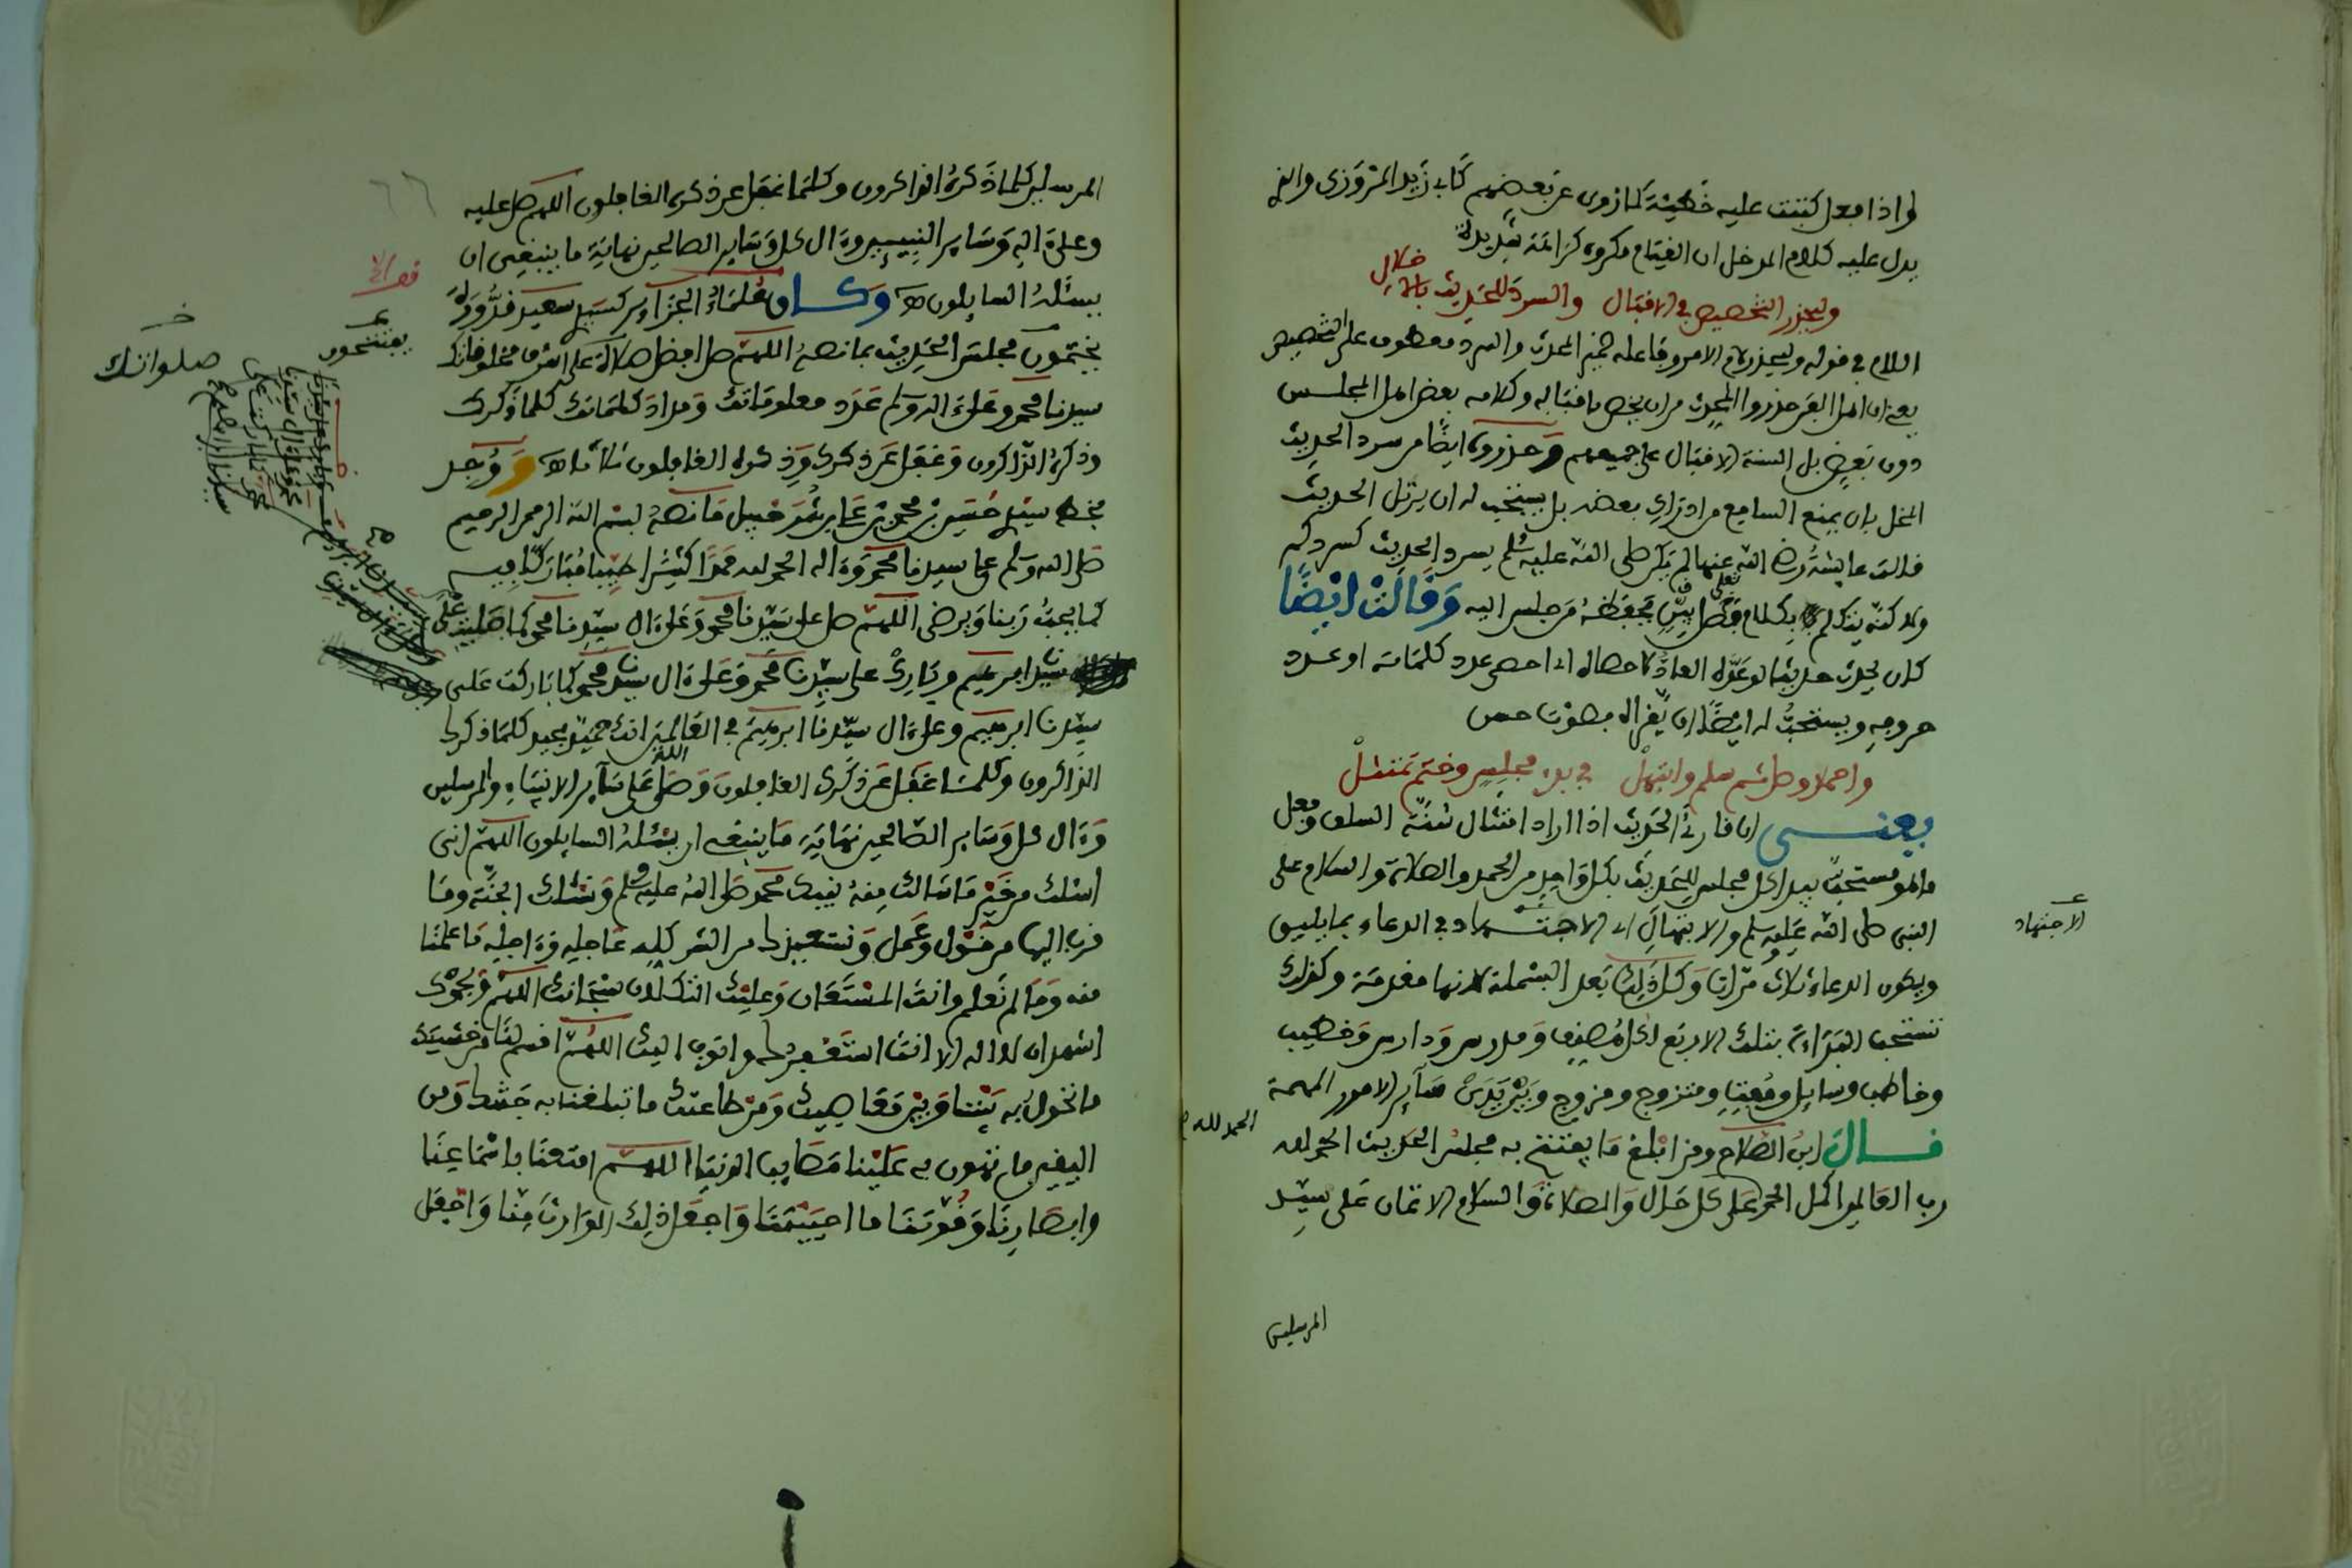 لو اذا فعل كتبت عليه خطيئة كما روي عن بعضهم كابي زيد المروزي والذي
يدل عليه كلام المدخل ان القيام مكروه كراهة شديدة
وليحذر التخصيص في الاقبال والسرد للحديث بالاخلال
اللام في قوله وليحذر لام الامر وفاعله ضمير المحدث والسرد معطوف على التخصيص
يعني ان اهل الفن حذروا المحدث من ان يخص باقباله وكلامه بعض اهل المجلس
دون بعض بل السنة الاقبال على جميعهم وحذروه ايضا من سرد الحديث
المخل بان يمنع السامع من ادراك بعضه بل يستحب له ان يرتل الحديث
قالت عايشة رضي الله عنها لم يكن صلى الله عليه وسلم يسرد الحديث كسردكم
ولاكنه يتكلم بكلام فصل بين يحفظه من جلس اليه وقالت ايضا
كان يحدث حديثا لو عده العاد لاحصاه اي احصى عدد كلماته او عدد
حروفه ويستحب له ايضا ان يقراه بصوت حسن
واحمد وصل ثم سلم وابتهل في بدء مجلس وختم تمتثل
يعني ان قارئ الحديث اذا اراد امتثال سنة السلف وفعل
ما هو مستحب يبدا كل مجلس للتحديث بكل واحد من الحمد والصلاة والسلام على
النبي صلى الله عليه وسلم والابتهال اي الاجتهاد في الدعاء بما يليق
الاجتهاد
ويكون الدعاء ثلاث مرات وكل ذلك بعد البسملة لانها مقدمة وكذلك
تستحب القراءة بتلك الاربع لكل مصنف ومدرس ودارس وخطيب
وخاطب وسايل ومفتي ومتزوج ومزوج وبين يدي ساير الامور المهمة
قال ابن الصلاح ومن ابلغ ما يفتتح به مجلس الحديث الحمد لله
الحمد لله
رب العالمين اكمل الحمد على كل حال والصلاة والسلام الاتمان على سيد
المرسلين
٦٦
المرسلين كلما ذكره الذاكرون وكلما غفل عن ذكره الغافلون اللهم صل عليه
وعلى اله وساير النبيين وءال كل وساير الصالحين نهاية ما ينبغي ان
يسئله السايلون وكان علماء الجزاير كسيدي سعيد قدورة
يختمون مجلس الحديث بما نصه اللهم صل افضل صلاة على اشرف مخلوقاتك
يفتتحون
صلواتك
سيدنا محمد وعلى ءاله وسلم عدد معلوماتك ومداد كلماتك كلما ذكرك
وذكره الذاكرون وغفل عن ذكرك وذكره الغافلون ثلاثا ووجد
بخط سيدي حسين بن محمد بن علي شوخبيل ما نصه بسم الله الرحمن الرحيم
صلى الله وسلم على سيدنا محمد وءاله الحمد لله حمدا كثيرا طيبا مباركا فيه
كما يحبه ربنا ويرضى اللهم صل على سيدنا محمد وعلى ءال سيدنا محمد كما صليت على
سيدنا ابرهيم وبارك على سيدنا محمد وعلى ءال سيدنا محمد كما باركت على
سيدنا ابرهيم وعلى ءال سيدنا ابرهيم في العالمين انك حميد مجيد كلما ذكرك
الذاكرون وكلما غفل عن ذكرك الغافلون وصلى الله على ساير الانبياء والمرسلين
وءال كل وساير الصالحين نهاية ما ينبغي ان يسئله السايلون اللهم اني
اسئلك من خير ما سالك منه نبيك محمد صلى الله عليه وسلم ونسئلك الجنة وما
قرب اليها من قول وعمل ونستعيذك من الشر كله عاجله وءاجله ما علمنا
منه وما لم نعلم وانت المستعان وعليك التكلان سبحانك اللهم وبحمدك
اشهد ان لا اله الا انت استغفرك واتوب اليك اللهم اقسم لنا من خشيتك
ما تحول به بيننا وبين معاصيك ومن طاعتك ما تبلغنا به جنتك ومن
اليقين ما تهون به علينا مصايب الدنيا اللهم امتعنا باسماعنا
وابصارنا وقوتنا ما احييتنا واجعل ذلك الوارث منا واجعل